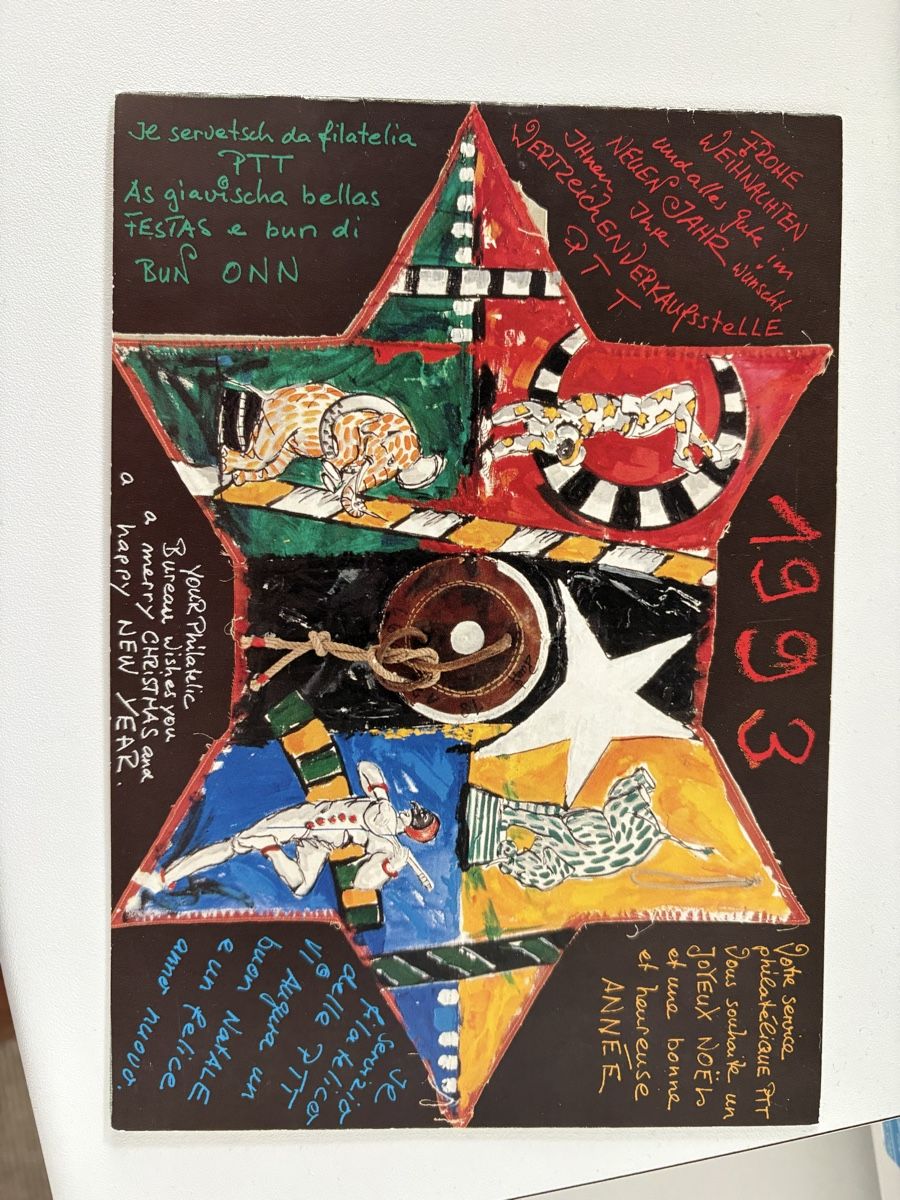 Je servetsch da filatelia
PTT
As giavüscha bellas
FESTAS e bun di
BUN ONN
FROHE
WEIHNACHTEN
und alles gute im
NEUEN JAHR wünscht
IHnen Ihre
WERTZeiCHENVERKAUfsstelLE
PTT
1993
YOUR Philatelic
Bureau wishes you
a merry CHRISTMAS and
a happy NEW YEAR.
Votre service
philatélique PTT
vous souhaite un
JOYEUX NOËL
et une bonne
et heureuse
ANNÉE
Je servizio
filatelico
delle PTT
Vi Augura un
buon NATALE
e un felice
anno nuovo.